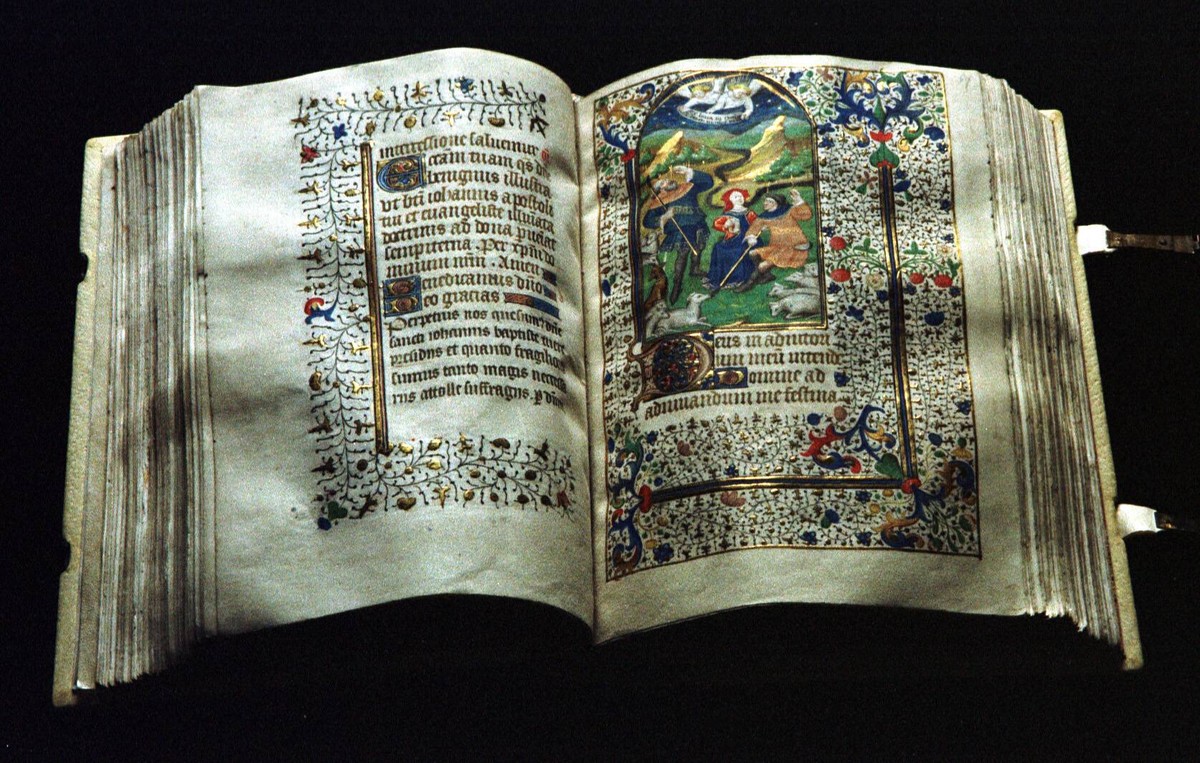 intercessione salvemur
Ecclesiam tuam qs dne
benignus illustra
ut bti iohannis apostoli
tui et euangeliste illuiata
doctrinis ad dona puéiat
sempiterna . Per xpm do
minum nrm . Amen
Benedicamus dno
Deo gracias
Perpetuis nos quesumus dne
sancti iohannis baptiste tuere
presidiis et quanto fragilio
sumus tanto magis necessa
riis attolle suffragiis . P
Deus in adiutori
um meu intende
Domine ad
adiuuandum me festina